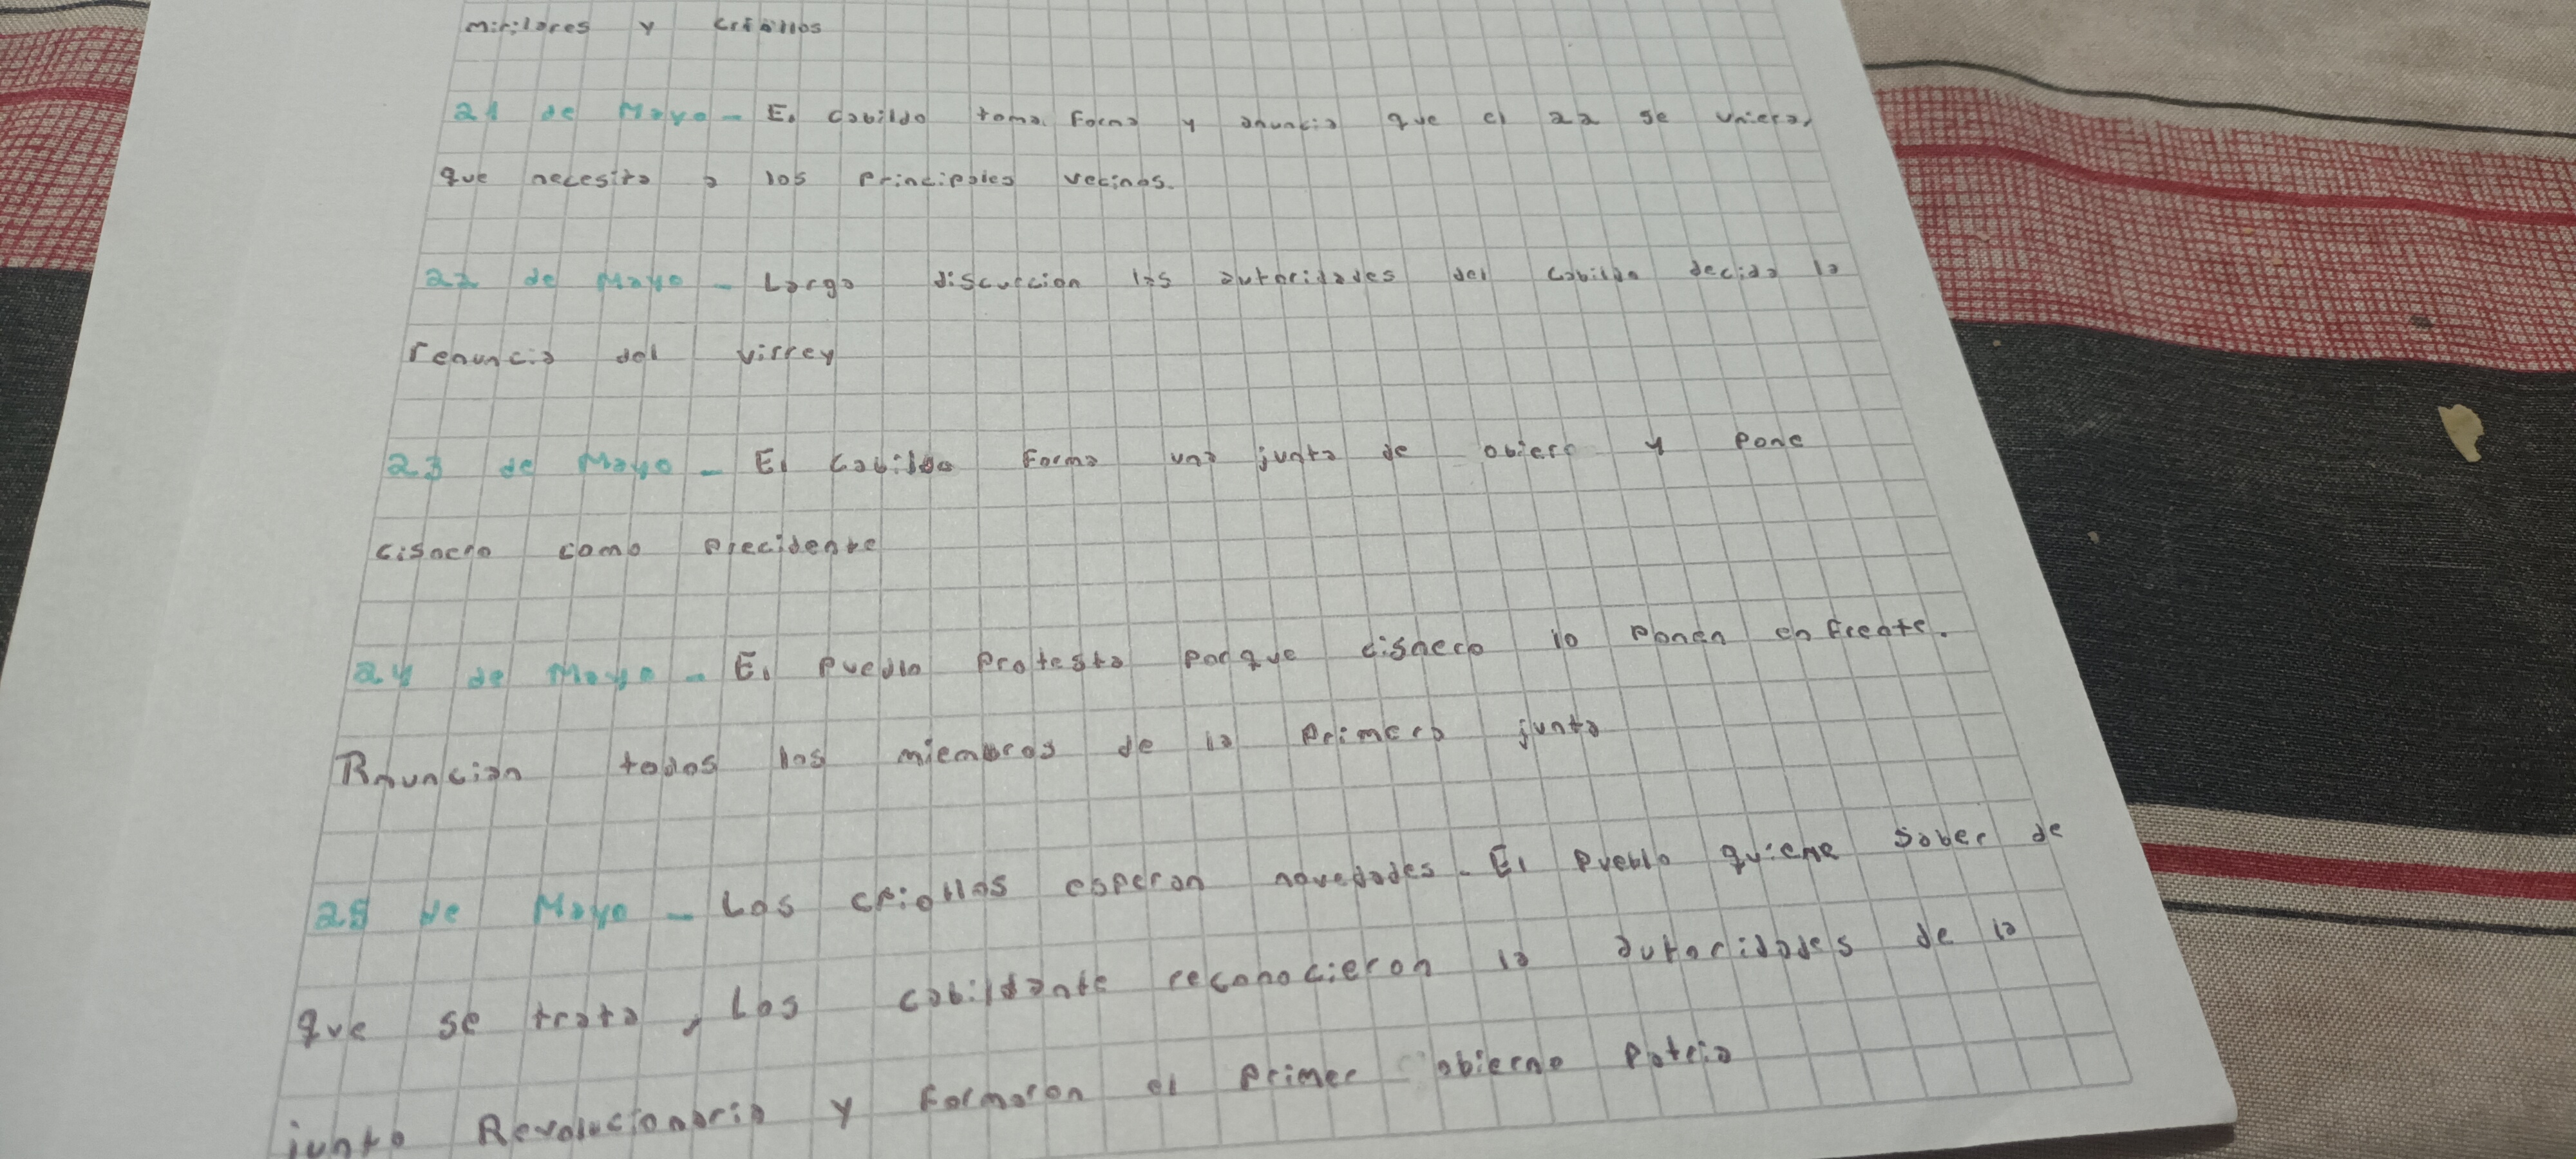 mirilares y criollos
21 de Mayo - El cabildo toma forma y anuncia que el 22 se uniera,
que necesita a los principales vecinos.
22 de Mayo - Larga discurcion las autoridades del cabildo decida la
renuncia del virrey
23 de Mayo - El cabildo forma una junta de obiero y pone
cisnero como precidente
24 de Mayo - El pueblo protesta porque cisnero lo ponen en frente.
Rnuncian todos los miembros de la primera junta
25 de Mayo - Los criollos esperan novedades. El pueblo quiene saber de
que se trata, Los cabildante reconocieron la autoridades de la
junta Revolucionaria y formaron el primer obierno patria